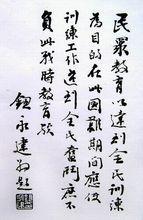 民衆教育以達到全民訓練
為目的在此國難期間應從
訓練工作達到全民奮鬥庶不
負此戰時教育歟
鈕永建題